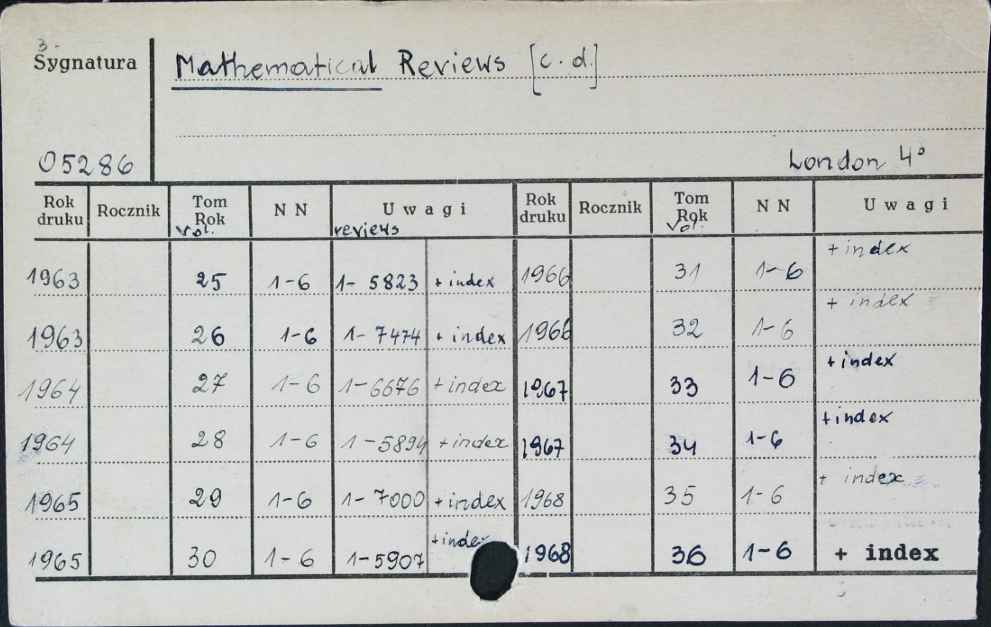 3.
Sygnatura
Mathematical Reviews [c.d.]
05286
London 4°
Rok druku Rocznik Tom Rok vol. NN Uwagi reviews Rok druku Rocznik Tom Rok vol. NN Uwagi
1963 25 1-6 1-5823 + index 1966 31 1-6 + index
1963 26 1-6 1-7474 + index 1966 32 1-6 + index
1964 27 1-6 1-6676 + index 1967 33 1-6 + index
1964 28 1-6 1-5894 + index 1967 34 1-6 + index
1965 29 1-6 1-7000 + index 1968 35 1-6 + index
1965 30 1-6 1-5907 + index 1968 36 1-6 + index